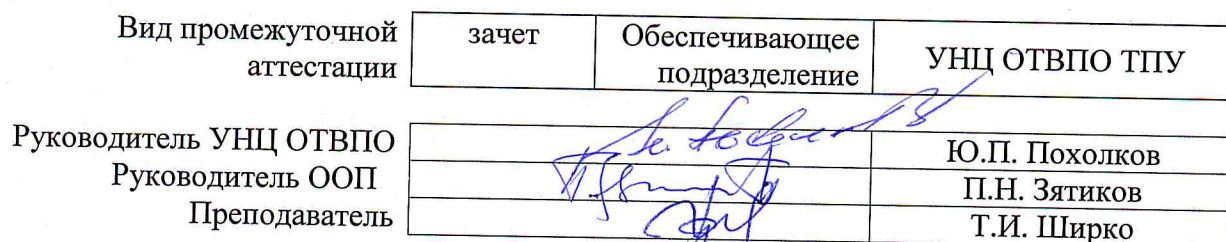 Вид промежуточной аттестации зачет Обеспечивающее подразделение УНЦ ОТВПО ТПУ
Руководитель УНЦ ОТВПО Ю.П. Похолков
Руководитель ООП П.Н. Зятиков
Преподаватель Т.И. Ширко